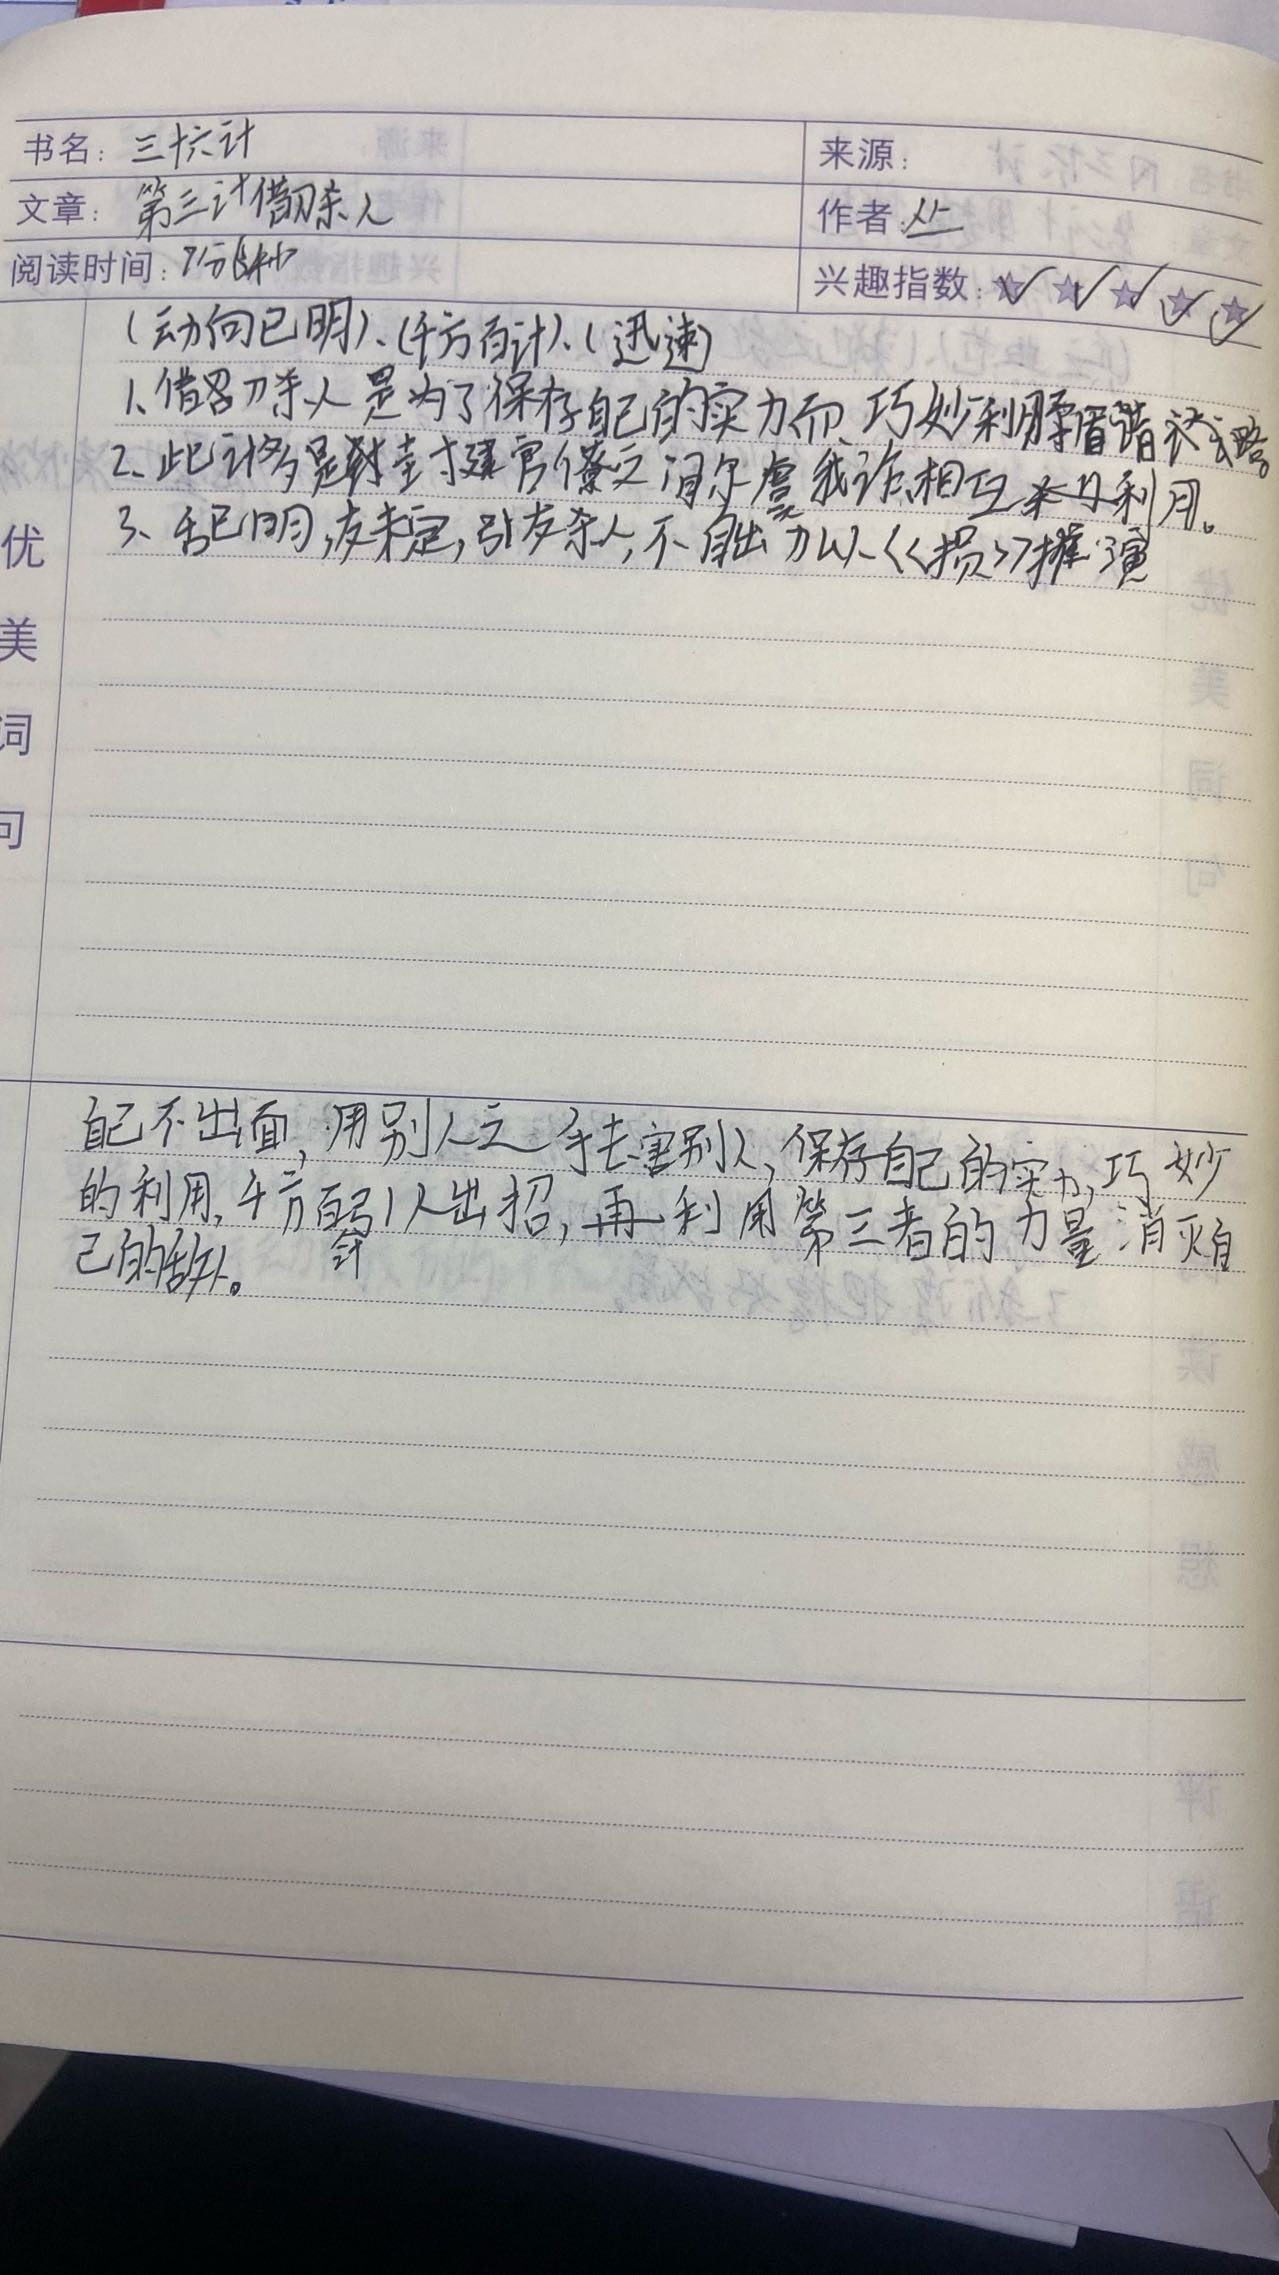 书名：三十六计
来源：
文章：第三计借刀杀人
作者：
阅读时间：7分
兴趣指数：☆☆☆☆☆
（动向已明）、（千方百计）、（迅速）
1、借刀杀人是为了保存自己的实力而、巧妙利用矛盾谋略。
2、此计多是封建官僚之间尔虞我诈、相互利用。
3、已明，友未定，引友杀人，不自出力以《《损》》推演
优
美
词
句
自己不出面，用别人之手去害别人，保存自己的实力，巧妙
的利用，千方百计引人出招，再利用第三者的力量消灭自
己的敌人。